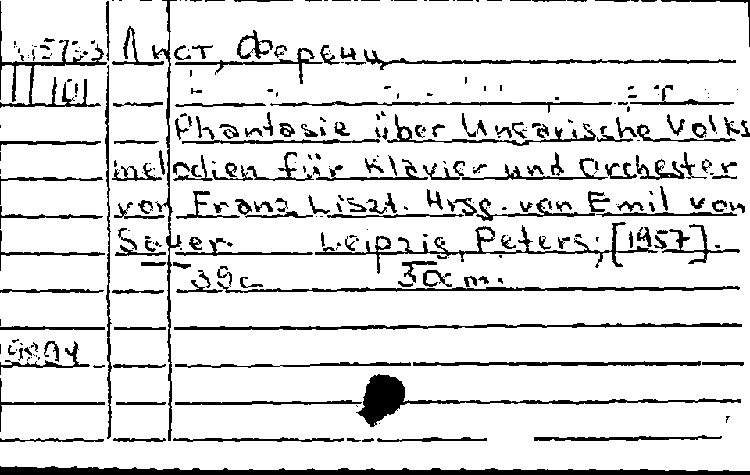 Лист, Ференц
III 101
Phantasie über Ungarische Volks
melodien für Klavier und Orchester
von Franz Liszt. Hrsg. von Emil von
Sauer. Leipzig, Peters, [1957].
39c 30cm.